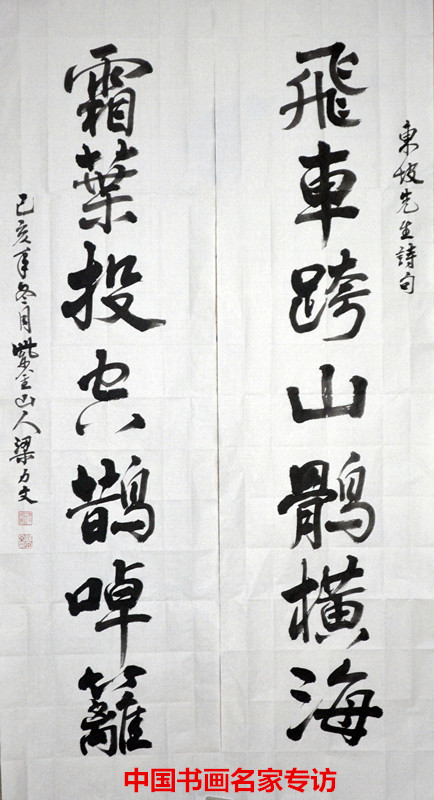 東坡先生詩句
飛車跨山鶻橫海
霜葉投空鵲啅籬
己亥年冬月紫金山人梁文
中国书画名家专访